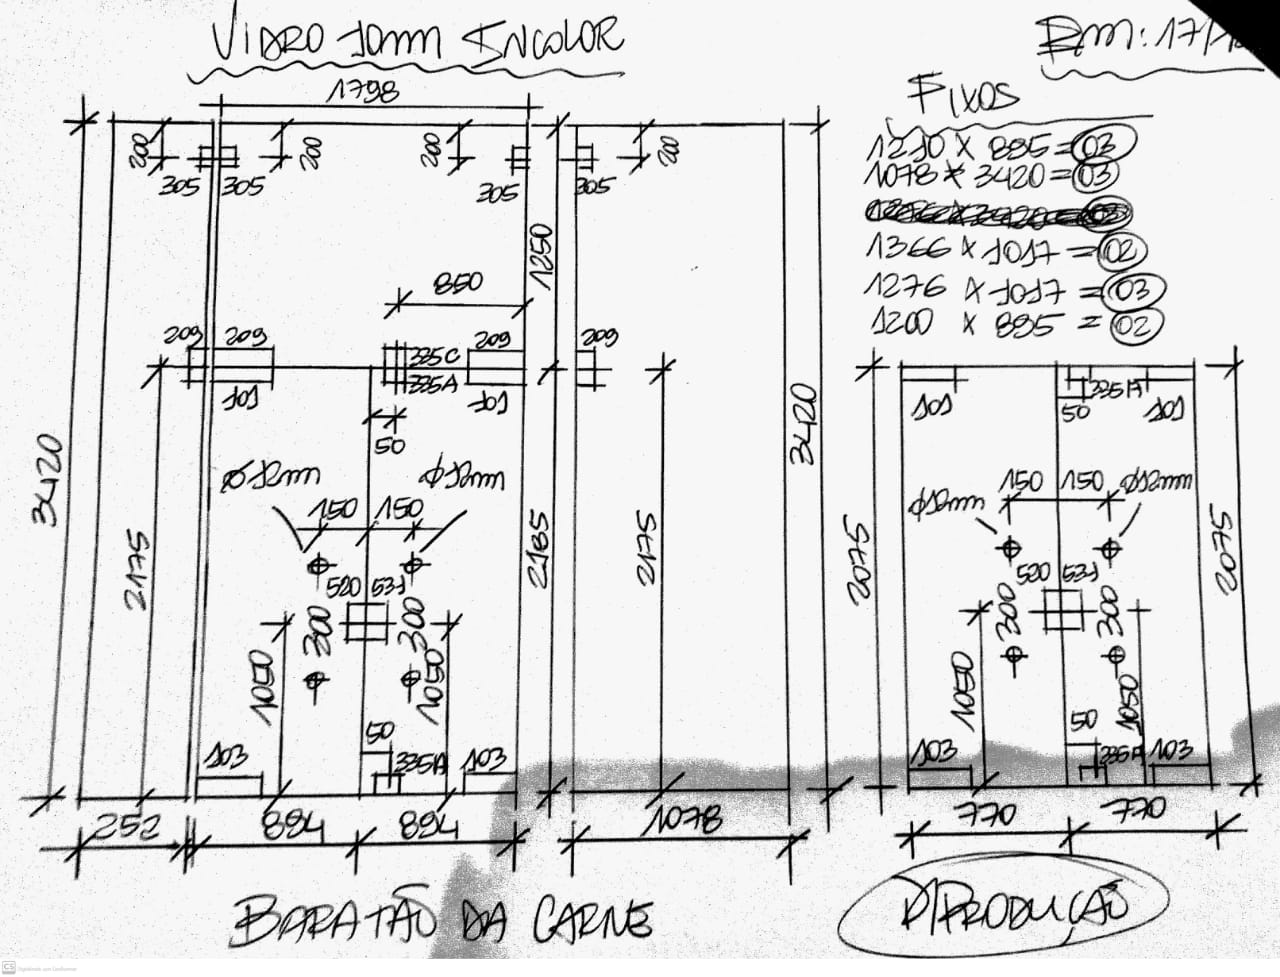 VIDRO 10mm INCOLOR
Em: 17/
1798
FIXOS
1210 X 895 = 03
1078 X 3420 = 03
1366 X 1017 = 02
1276 X 1017 = 03
1200 X 895 = 02
200
200
200
200
305
305
305
305
1250
850
209
209
209
209
335C
335A
101
101
50
3420
3420
Ø12mm
Ø12mm
150
150
2175
2185
2175
520
531
300
300
1050
1050
50
103
335A
103
252
894
894
1078
101
335A
101
50
150
150
Ø12mm
Ø12mm
2075
2075
520
531
300
300
1050
1050
50
103
335A
103
770
770
BARATÃO DA CARNE
P/PRODUÇÃO
CS Digitalizado com CamScanner